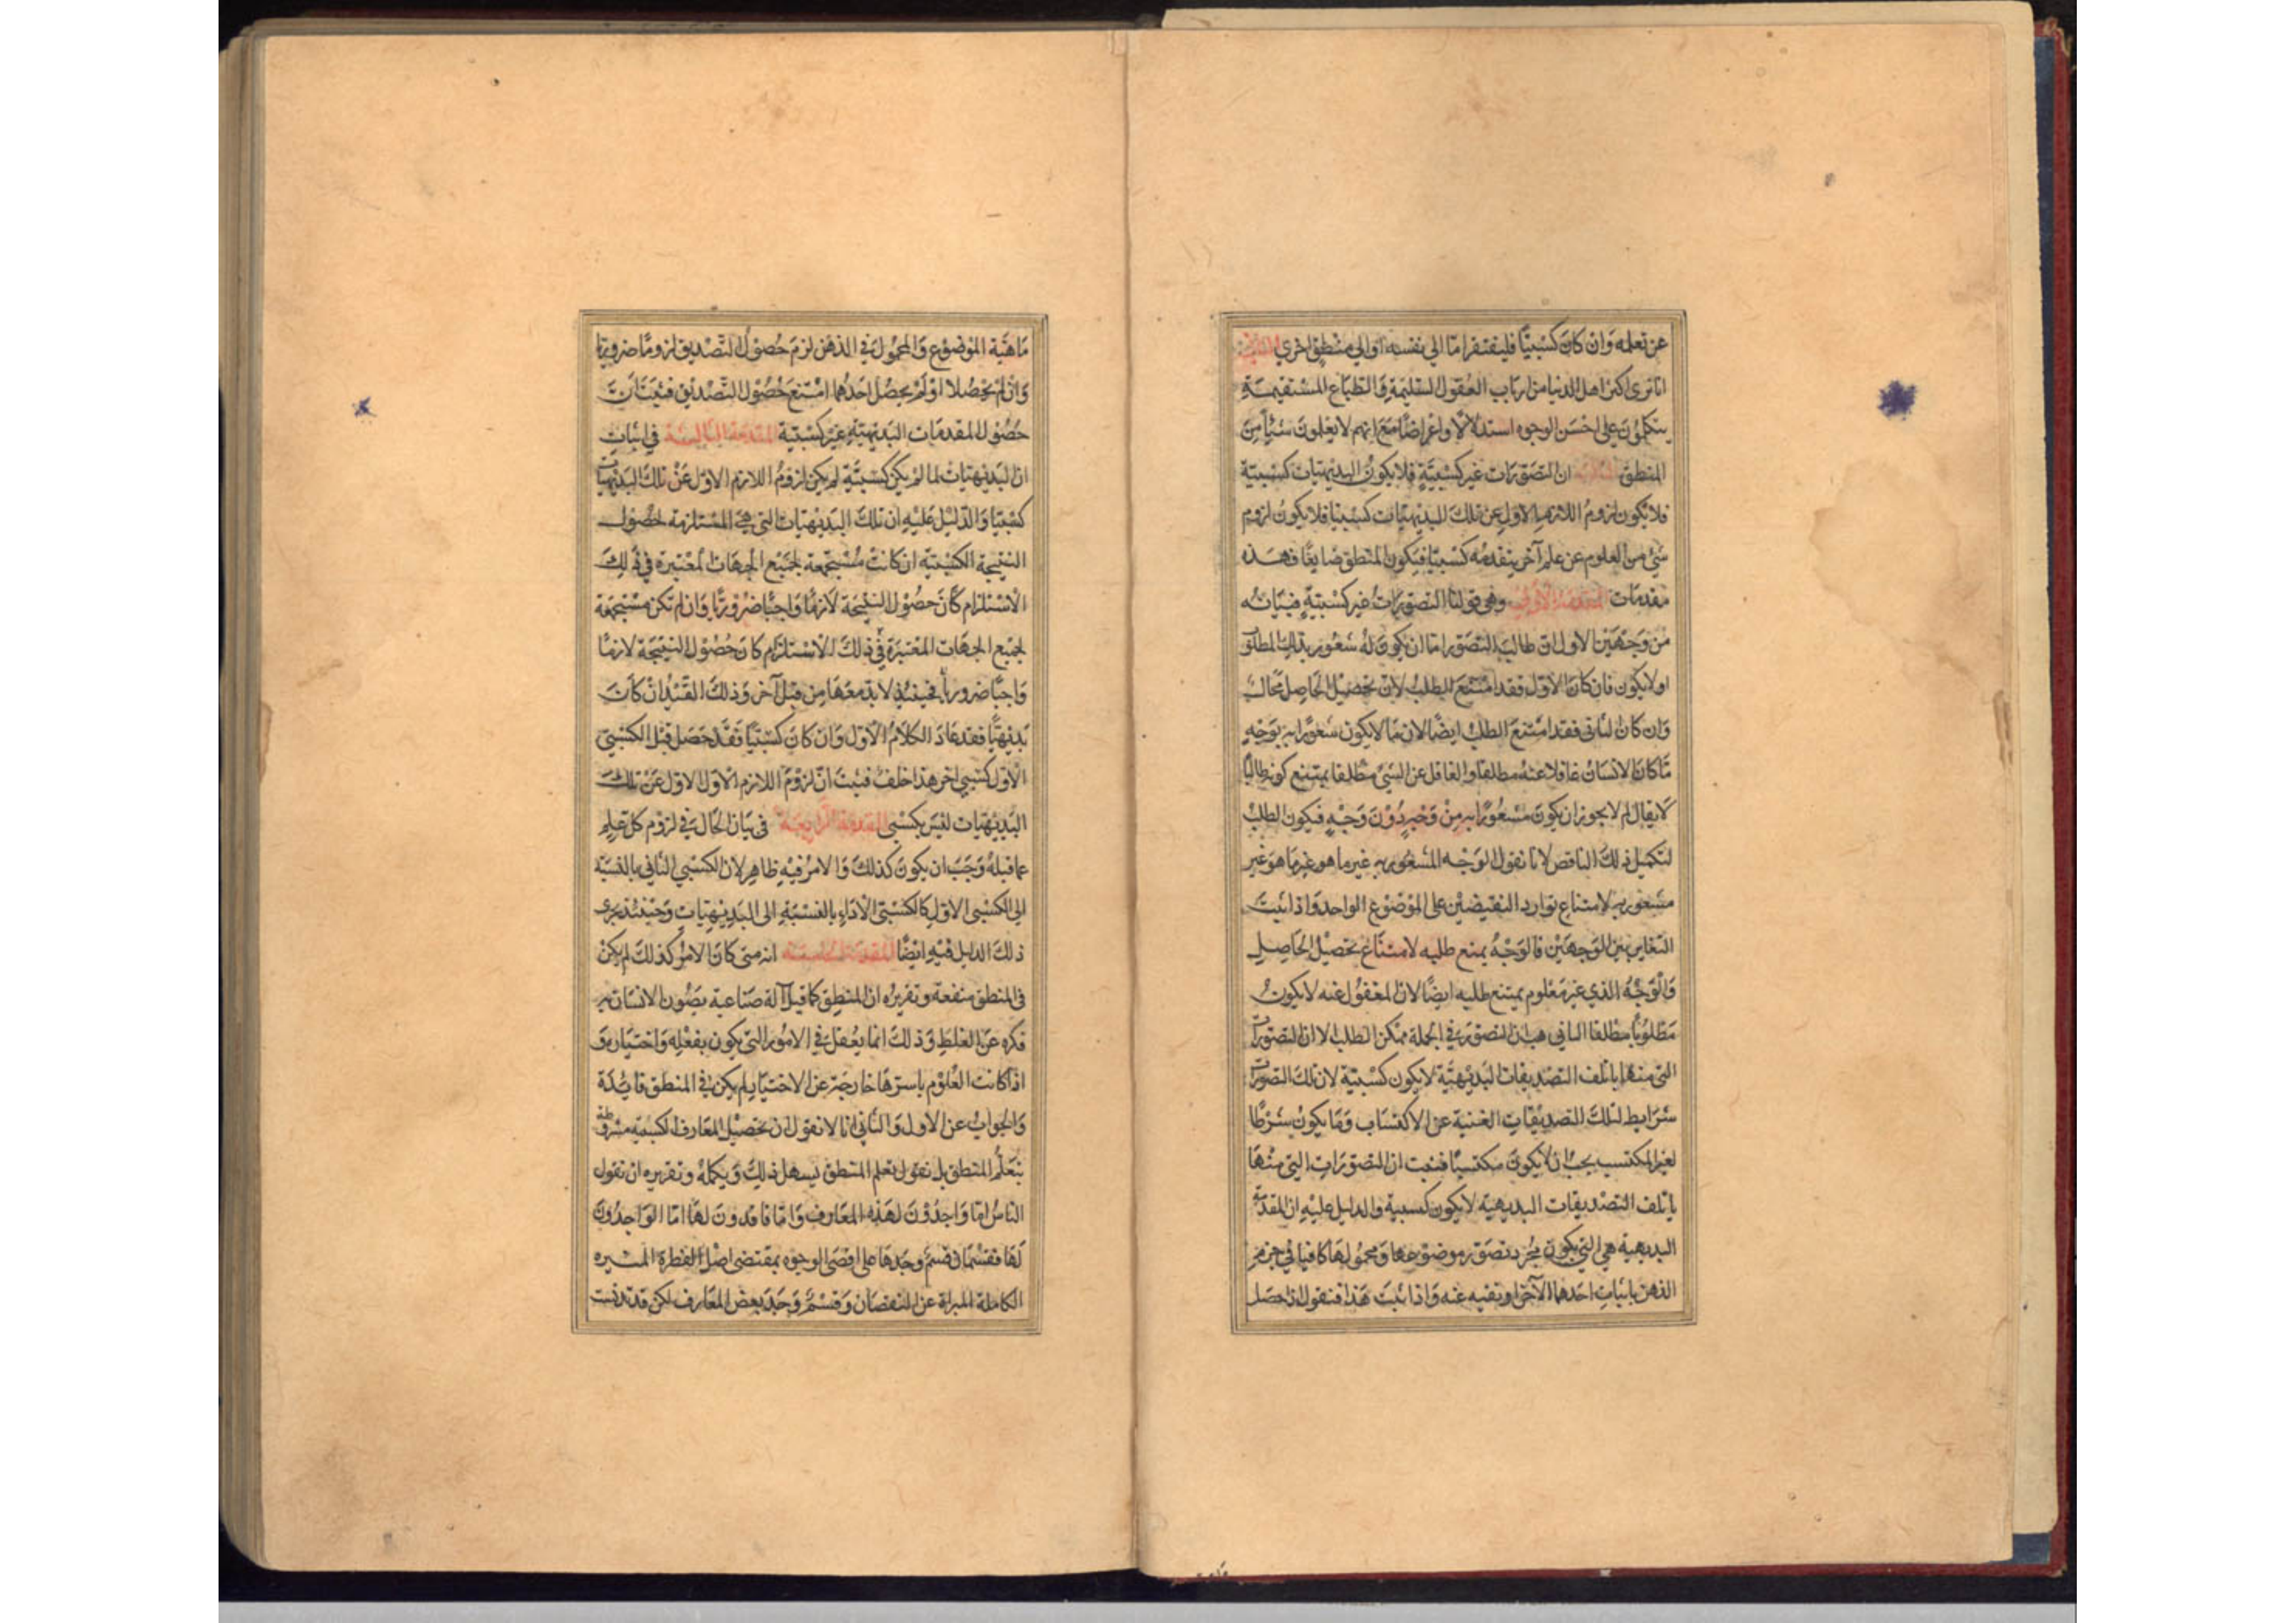 عن تعلمه وان كان كسبيا فليفتقر اما الي نفسه او الي منطق اخري
انا نرى اكثر اهل الدنيا من ارباب العقول السليمة والطباع المستقيمة
يتكلمون على احسن الوجوه استدلالا واعتراضا مع انهم لا يعلمون شيأ من
المنطق ان التصورات غير كسبية فلا يكون البديهيات كسبية
فلا يكون لزوم اللازم الاول عن تلك البديهيات كسبيا فلا يكون لزوم
شئ من العلوم عن علم آخر يتقدمه كسبيا فيكون المنطق ضايعا فهذه
مقدمات المقدمة الاولى وهي قولنا التصورات غير كسبية فبيانه
من وجهين الاول ان طالب التصور اما ان يكون له شعور بذلك المطلوب
اولا يكون فان كان الاول فقد امتنع الطلب لان تحصيل الحاصل محال
وان كان الثاني فقد امتنع الطلب ايضا لان ما لا يكون شعورا به بوجه
ما كان الانسان غافلا عنه مطلقا والغافل عن الشئ مطلقا يمتنع كونه طالبا
لا يقال لم لا يجوز ان يكون مشعورا به من وجه دون وجه فيكون الطلب
لتكميل ذلك الناقص لانا نقول الوجه المشعور به غير ما هو غير ما هو غير
مشعور به لامتناع توارد النقيضين على الموضوع الواحد واذا ثبت
التغاير بين الوجهين فالوجه يمنع طلبه لامتناع تحصيل الحاصل
والوجه الذي غير معلوم يمتنع طلبه ايضا لان المغفول عنه لا يكون
مطلوبا مطلقا الثاني هب ان التصور في الجملة ممكن الطلب الا ان التصورات
التي منها يأتلف التصديقات البديهية لا يكون كسبية لان تلك التصورات
شرايط لتلك التصديقات الغنية عن الاكتساب وما يكون شرطا
لغير المكتسب يجب ان لا يكون مكتسبا فثبت ان التصورات التي منها
يأتلف التصديقات البديهية لا يكون كسبية والدليل عليه ان المقدمة
البديهية هي التي يكون مجرد تصور موضوعها ومحمولها كافيا في جزم
الذهن باثبات احدهما للآخر او نفيه عنه واذا ثبت هذا فنقول اذا حصل
ماهية الموضوع والمحمول في الذهن لزم حصول التصديق لزوما ضروريا
وان لم يحصلا او لم يحصل احدهما امتنع حصول التصديق فثبت ان
حصول المقدمات البديهية غير كسبية المقدمة الثالثة في اثبات
ان البديهيات لما لم يكن كسبية لم يكن لزوم اللازم الاول عن تلك البديهيات
كسبيا والدليل عليه ان تلك البديهيات التي هي المستلزمة لحصول
النتيجة الكسبية ان كانت مستجمعة لجميع الجهات المعتبرة في ذلك
الاستلزام كان حصول النتيجة لازما واجبا ضروريا وان لم تكن مستجمعة
لجميع الجهات المعتبرة في ذلك الاستلزام كان حصول النتيجة لازما
واجبا ضروريا فحينئذ لا بد معها من قبل آخر وذلك القيد ان كان
بديهيا فقد عاد الكلام الاول وان كان كسبيا فقد حصل قبل الكسبي
الاول كسبي اخر هذا خلف فثبت ان لزوم اللازم الاول الاول عن تلك
البديهيات ليس بكسبى المقدمة الرابعة فى بيان الحال في لزوم كل علم
عما قبله وجب ان يكون كذلك والامر فيه ظاهر لان الكسبي الثاني بالنسبة
الى الكسبى الاول كالكسبى الاداء بالنسبة الى البديهيات وحينئذ يجرى
ذلك الدليل فيه ايضا المقدمة الخامسة انه متى كان الامر كذلك لم يكن
فى المنطق منفعة وتقريره ان المنطق كما قيل آلة صناعية يصون الانسان به
فكره عن الغلط وذلك انما يعقل في الامور التي يكون بفعله واختياره و
اذا كانت العلوم باسرها خارجة عن الاختيار لم يكن في المنطق فايدة
والجواب عن الاول والثاني انا لا نقول ان تحصيل المعارف الكسبية مشروطة
بتعلم المنطق بل نقول تعلم المنطق يسهل ذلك ويكمله وتقريره ان نقول
الناس اما واجدون لهذه المعارف واما فاقدون لها اما الواجدون
لها فقسمان قسم وجدها على اقصى الوجوه بمقتضى اصل الفطرة
الكاملة المبراة عن النقصان وقسم وجد بعض المعارف لكن قد